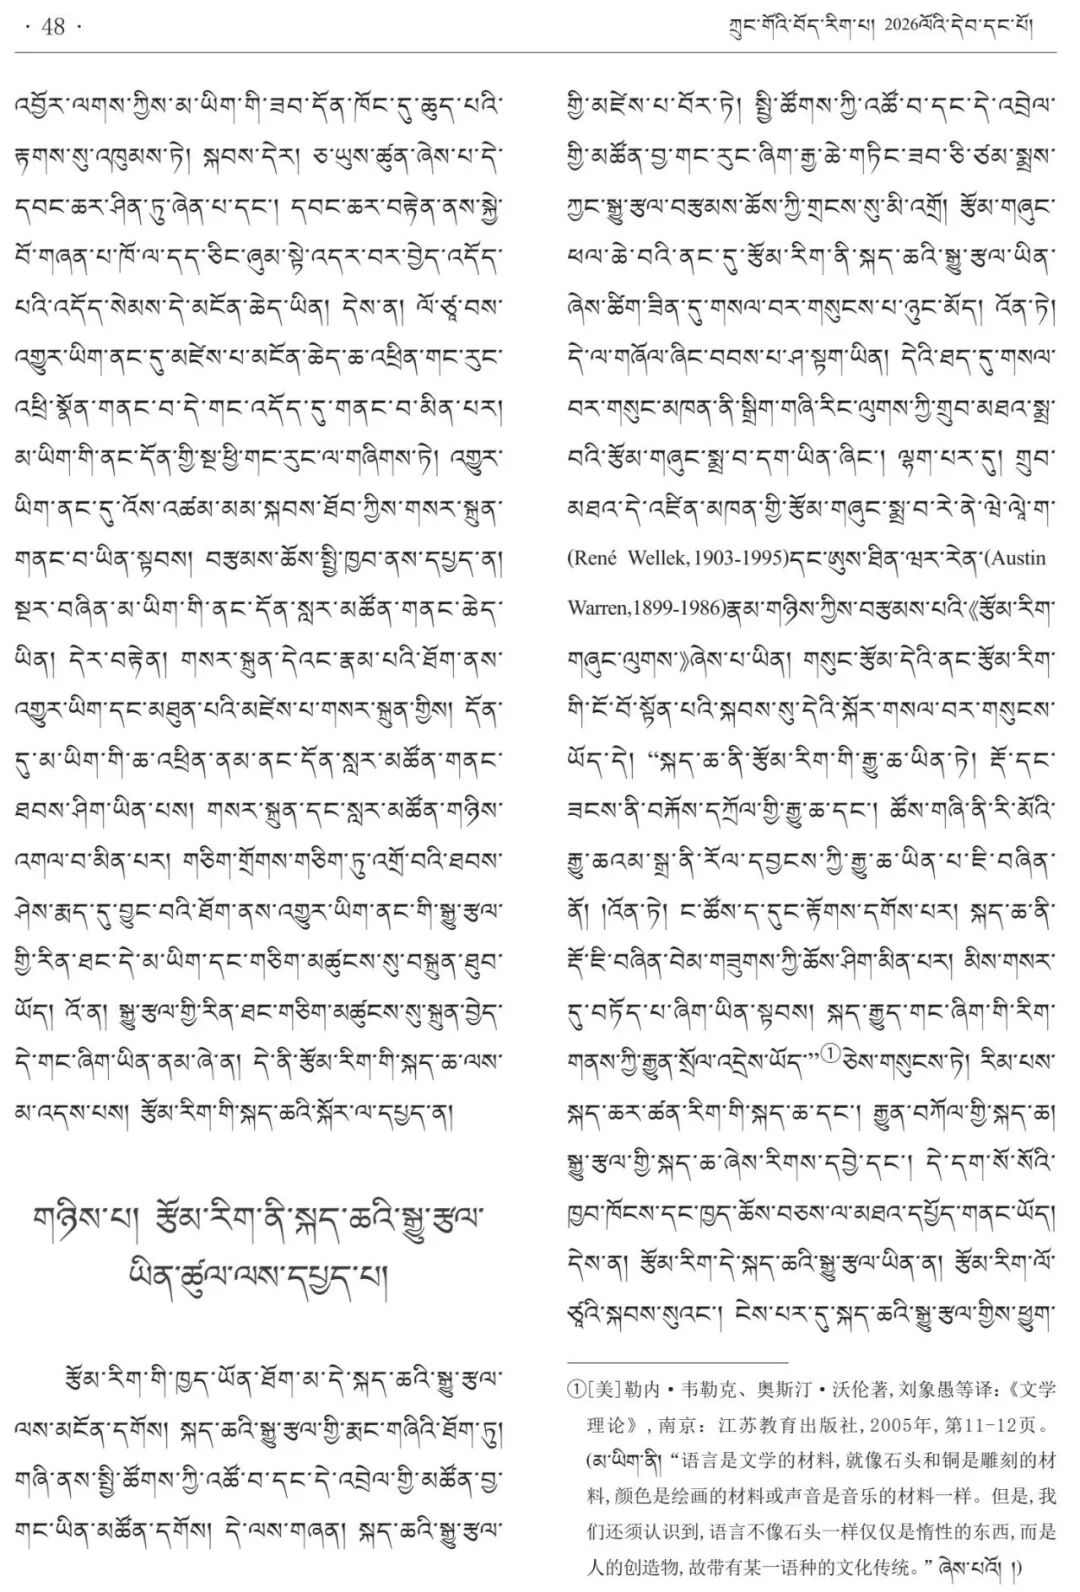 · 48 ·
ཀྲུང་གོའི་བོད་རིག་པ། 2026ལོའི་དེབ་དང་པོ།
འབྱོར་ལགས་ཀྱིས་མ་ཡིག་གི་ཟབ་དོན་ཁོང་དུ་ཆུད་པའི་
རྟགས་སུ་འཁུམས་ཏེ། སྐབས་དེར། ཅ་ཡུས་ཚུན་ཞེས་པ་དེ་
དབང་ཆར་ཤིན་ཏུ་ཞེན་པ་དང་། དབང་ཆར་བརྟེན་ནས་སྐྱེ་
བོ་གཞན་པ་ཁོ་ལ་དད་ཅིང་ཞུམ་སྟེ་འདར་བར་བྱེད་འདོད་
པའི་འདོད་སེམས་དེ་མངོན་ཆེད་ཡིན། དེས་ན། ལོ་ཙཱ་བས་
འགྱུར་ཡིག་ནང་དུ་མཛེས་པ་མངོན་ཆེད་ཆ་འཕྲིན་གང་རུང་
འཕྲི་སྣོན་གནང་བ་དེ་གང་འདོད་དུ་གནང་བ་མིན་པར།
མ་ཡིག་གི་ནང་དོན་གྱི་སྔ་ཕྱི་གང་རུང་ལ་གཞིགས་ཏེ། འགྱུར་
ཡིག་ནང་དུ་འོས་འཚམ་མམ་སྐབས་ཐོབ་ཀྱིས་གསར་སྐྲུན་
གནང་བ་ཡིན་སྟབས། བརྩམས་ཆོས་སྤྱི་ཁྱབ་ནས་དཔྱད་ན།
སྔར་བཞིན་མ་ཡིག་གི་ནང་དོན་སླར་མཚོན་གནང་ཆེད་
ཡིན། དེར་བརྟེན། གསར་སྐྲུན་དེའང་རྣམ་པའི་ཐོག་ནས་
འགྱུར་ཡིག་དང་མཐུན་པའི་མཛེས་པ་གསར་སྐྲུན་གྱིས། དོན་
དུ་མ་ཡིག་གི་ཆ་འཕྲིན་ནམ་ནང་དོན་སླར་མཚོན་གནང་
ཐབས་ཤིག་ཡིན་པས། གསར་སྐྲུན་དང་སླར་མཚོན་གཉིས་
འགལ་བ་མིན་པར། གཅིག་གྲོགས་གཅིག་ཏུ་འགྲོ་བའི་ཐབས་
ཤེས་རྨད་དུ་བྱུང་བའི་ཐོག་ནས་འགྱུར་ཡིག་ནང་གི་སྒྱུ་རྩལ་
གྱི་རིན་ཐང་དེ་མ་ཡིག་དང་གཅིག་མཚུངས་སུ་བསྐྲུན་ཐུབ་
ཡོད། འོ་ན། སྒྱུ་རྩལ་གྱི་རིན་ཐང་གཅིག་མཚུངས་སུ་སྐྲུན་བྱེད་
དེ་གང་ཞིག་ཡིན་ནམ་ཞེ་ན། དེ་ནི་རྩོམ་རིག་གི་སྐད་ཆ་ལས་
མ་འདས་པས། རྩོམ་རིག་གི་སྐད་ཆའི་སྐོར་ལ་དཔྱད་ན།
གཉིས་པ། རྩོམ་རིག་ནི་སྐད་ཆའི་སྒྱུ་རྩལ་
ཡིན་ཚུལ་ལས་དཔྱད་པ།
རྩོམ་རིག་གི་ཁྱད་ཡོན་ཐོག་མ་དེ་སྐད་ཆའི་སྒྱུ་རྩལ་
ལས་མངོན་དགོས། སྐད་ཆའི་སྒྱུ་རྩལ་གྱི་རྨང་གཞིའི་ཐོག་ཏུ།
གཞི་ནས་སྤྱི་ཚོགས་ཀྱི་འཚོ་བ་དང་དེ་འབྲེལ་གྱི་མཚོན་བྱ་
གང་ཡིན་མཚོན་དགོས། དེ་ལས་གཞན། སྐད་ཆའི་སྒྱུ་རྩལ་
གྱི་མཛེས་པ་བོར་ཏེ། སྤྱི་ཚོགས་ཀྱི་འཚོ་བ་དང་དེ་འབྲེལ་
གྱི་མཚོན་བྱ་གང་རུང་ཞིག་རྒྱ་ཆེ་གཏིང་ཟབ་ཅི་ཙམ་སྨྲས་
ཀྱང་སྒྱུ་རྩལ་བརྩམས་ཆོས་ཀྱི་གྲངས་སུ་མི་འགྲོ། རྩོམ་གཞུང་
ཕལ་ཆེ་བའི་ནང་དུ་རྩོམ་རིག་ནི་སྐད་ཆའི་སྒྱུ་རྩལ་ཡིན་
ཞེས་ཚིག་ཟིན་དུ་གསལ་བར་གསུངས་པ་ཉུང་མོད། འོན་ཏེ།
དེ་ལ་གཞོལ་ཞིང་བབས་པ་ཤ་སྟག་ཡིན། དེའི་ཐད་དུ་གསལ་
བར་གསུང་མཁན་ནི་སྒྲིག་གཞི་རིང་ལུགས་ཀྱི་གྲུབ་མཐའ་སྨྲ་
བའི་རྩོམ་གཞུང་སྨྲ་བ་དག་ཡིན་ཞིང་། ལྷག་པར་དུ། གྲུབ་
མཐའ་དེ་འཛིན་མཁན་གྱི་རྩོམ་གཞུང་སྨྲ་བ་རེ་ནེ་ཝེ་ལཱེ་ག་
(René Wellek,1903-1995)དང་ཨུས་ཐིན་ཝར་རེན་(Austin
Warren,1899-1986)རྣམ་གཉིས་ཀྱིས་བརྩམས་པའི་《རྩོམ་རིག་
གཞུང་ལུགས་》ཞེས་པ་ཡིན། གསུང་རྩོམ་དེའི་ནང་རྩོམ་རིག་
གི་ངོ་བོ་སྟོན་པའི་སྐབས་སུ་དེའི་སྐོར་གསལ་བར་གསུངས་
ཡོད་དེ། “སྐད་ཆ་ནི་རྩོམ་རིག་གི་རྒྱུ་ཆ་ཡིན་ཏེ། རྡོ་དང་
ཟངས་ནི་བརྐོས་དཀྲོལ་གྱི་རྒྱུ་ཆ་དང་། ཚོས་གཞི་ནི་རི་མོའི་
རྒྱུ་ཆའམ་སྒྲ་ནི་རོལ་དབྱངས་ཀྱི་རྒྱུ་ཆ་ཡིན་པ་ཇི་བཞིན་
ནོ། །འོན་ཏེ། ང་ཚོས་ད་དུང་རྟོགས་དགོས་པར། སྐད་ཆ་ནི་
རྡོ་ཇི་བཞིན་བེམ་གཟུགས་ཀྱི་ཆོས་ཤིག་མིན་པར། མིས་གསར་
དུ་བཏོད་པ་ཞིག་ཡིན་སྟབས། སྐད་རྒྱུད་གང་ཞིག་གི་རིག་
གནས་ཀྱི་རྒྱུན་སྲོལ་འདྲེས་ཡོད་”①ཅེས་གསུངས་ཏེ། རིམ་པས་
སྐད་ཆར་ཚན་རིག་གི་སྐད་ཆ་དང་། རྒྱུན་བཀོལ་གྱི་སྐད་ཆ།
སྒྱུ་རྩལ་གྱི་སྐད་ཆ་ཞེས་རིགས་དབྱེ་དང་། དེ་དག་སོ་སོའི་
ཁྱབ་ཁོངས་དང་ཁྱད་ཆོས་བཅས་ལ་མཐའ་དཔྱོད་གནང་ཡོད།
དེས་ན། རྩོམ་རིག་དེ་སྐད་ཆའི་སྒྱུ་རྩལ་ཡིན་ན། རྩོམ་རིག་ལོ་
ཙཱའི་སྐབས་སུའང་། ངེས་པར་དུ་སྐད་ཆའི་སྒྱུ་རྩལ་གྱིས་ཕྱུག་
①[美]勒内·韦勒克、奥斯汀·沃伦著,刘象愚等译:《文学
理论》,南京:江苏教育出版社,2005年,第11-12页。
(མ་ཡིག་ནི། “语言是文学的材料,就像石头和铜是雕刻的材
料,颜色是绘画的材料或声音是音乐的材料一样。但是,我
们还须认识到,语言不像石头一样仅仅是惰性的东西,而是
人的创造物,故带有某一语种的文化传统。” ཞེས་པའོ། །)